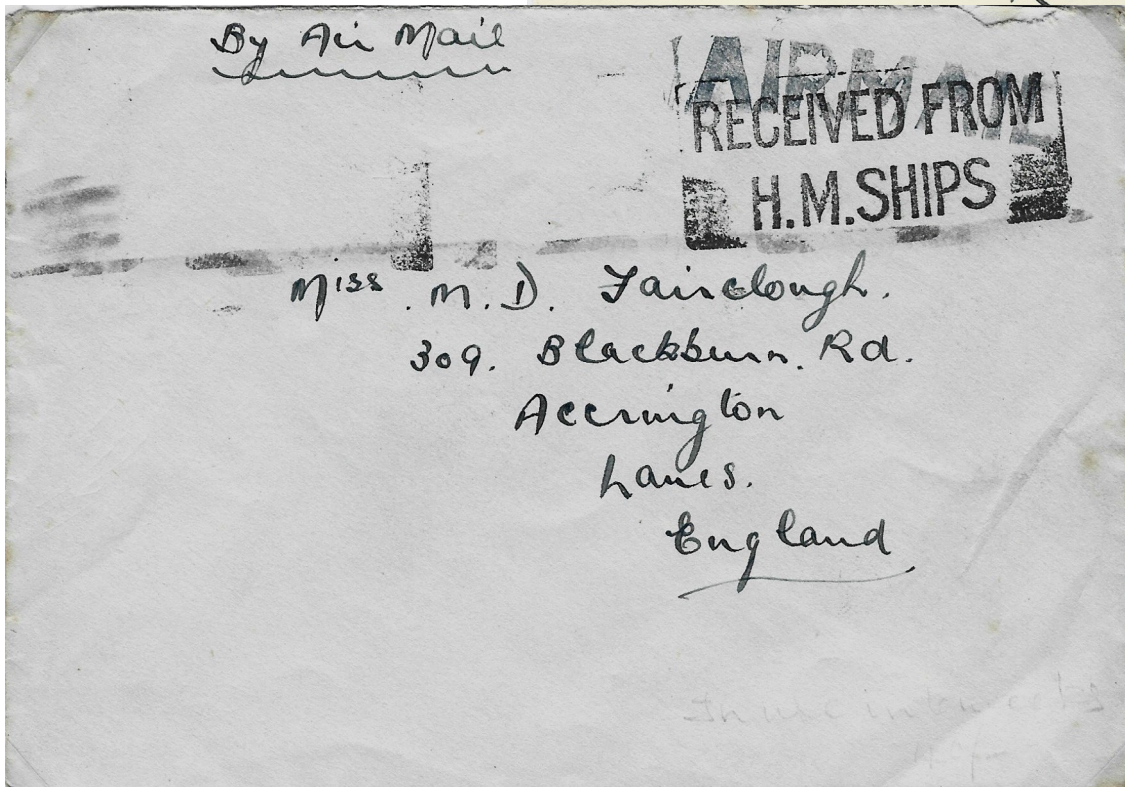 By Air Mail
AIRMAIL
RECEIVED FROM
H.M.SHIPS
Miss. M. D. Fairclough.
309. Blackburn. Rd.
Accrington
Lancs.
England